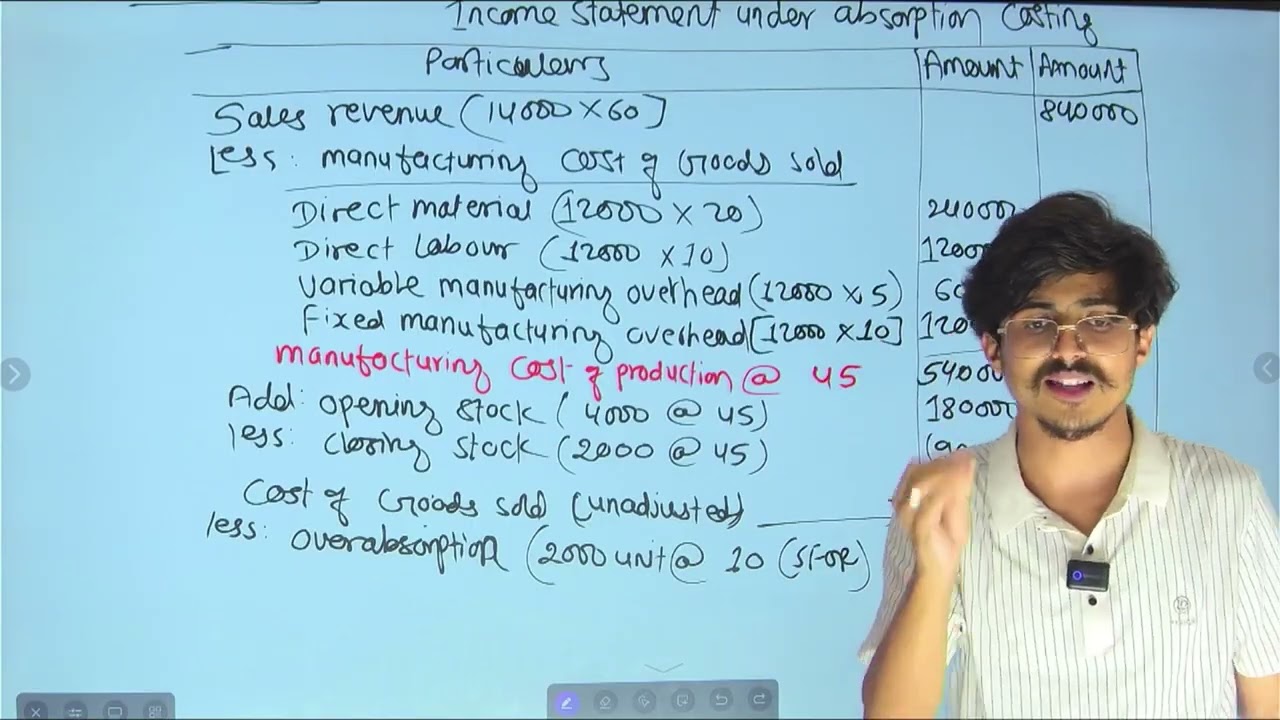 Income Statement under absorption Casting
Particulars Amount Amount
Sales revenue (14000 × 60] 840000
Less: manufacturing cost of Goods sold
Direct material (12000 × 20) 240000
Direct Labour (12000 × 10)
Variable manufacturing overhead (12000 × 5)
Fixed manufacturing overhead [12000 × 10]
manufacturing cost of production @ 45
Add: opening stock (4000 @ 45) 180000
less: closing stock (2000 @ 45)
Cost of Goods sold (unadjusted)
less: overabsorption (2000 unit @ 10 (SFOR)